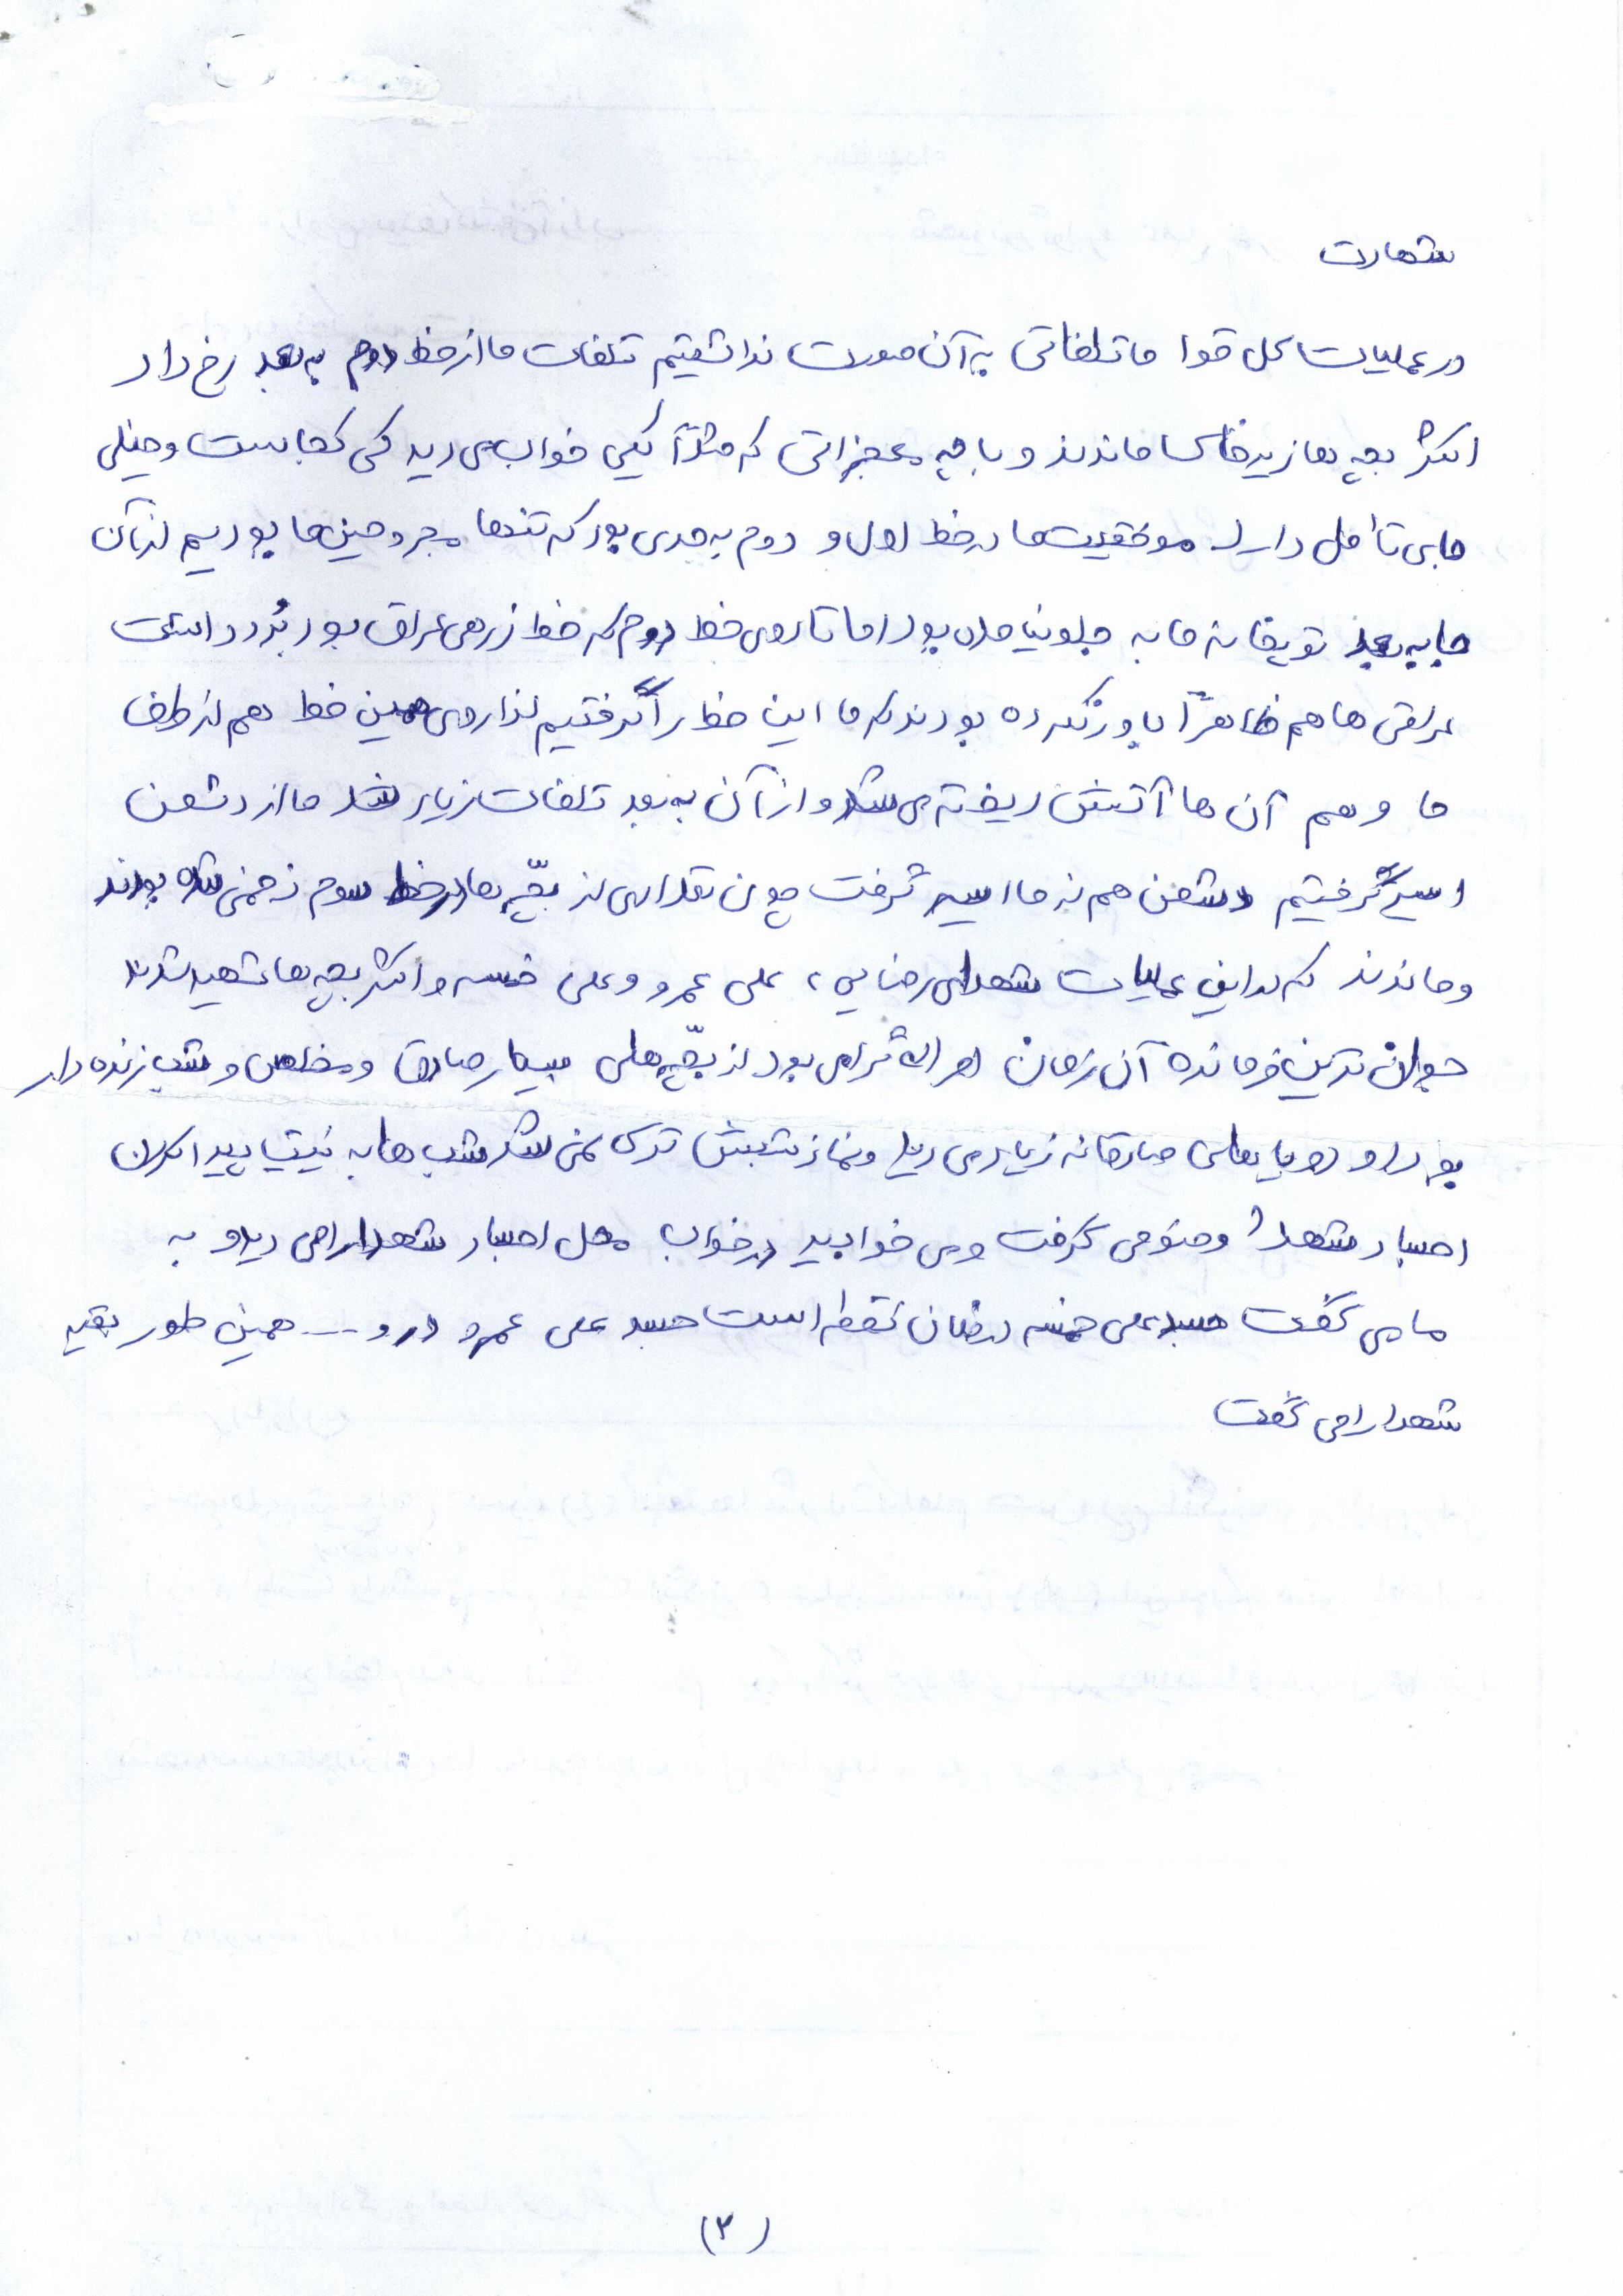 شهادت
در عملیات کل قوا ما تلفاتی به آن صورت نداشتیم تلفات ما از خط دوم به بعد رخ داد
اکثر بچه ها زیر خاک ها ماندند و با چه معجزاتی که مثلاً یکی خواب می دید کی کجاست و خیلی
جای تأمل دارد موفقیت ما در خط اول و دوم به حدی بود که تنها مجروحین ما بودیم از آن
جا به بعد توپخانه ما به جلو نیامده بود اما تا روی خط دوم که خط زرهی عراق بود بُرد داشت
عراقی ها هم ظاهراً باور نکرده بودند که ما این خط را گرفتیم لذا روی همین خط هم از طرف
ما و هم آن ها آتش ریخته می شد و از آن به بعد تلفات زیاد شد ما از دشمن
اسیر گرفتیم دشمن هم از ما اسیر گرفت چون تعدادی از بچّه ها در خط سوم زخمی شده بودند
و ماندند که در این عملیات شهدای رضایی، علی عمرو و علی خمسه و اکثر بچه ها شهید شدند
جوان ترین فرمانده آن زمان بود از بچّه های بسیار صادق و مخلص و شب زنده دار
بود او رویاهای صادقانه زیاد می دید و نماز شبش ترک نمی شد شب ها به نیت پیدا کردن
اجساد شهدا وضو می گرفت و می خوابید در خواب محل اجساد شهدا را می دید و به
ما می گفت جسد علی خمسه در فلان نقطه است جسد علی عمرو در و .... همین طور بقیه
شهدا را می گفت
(۳)